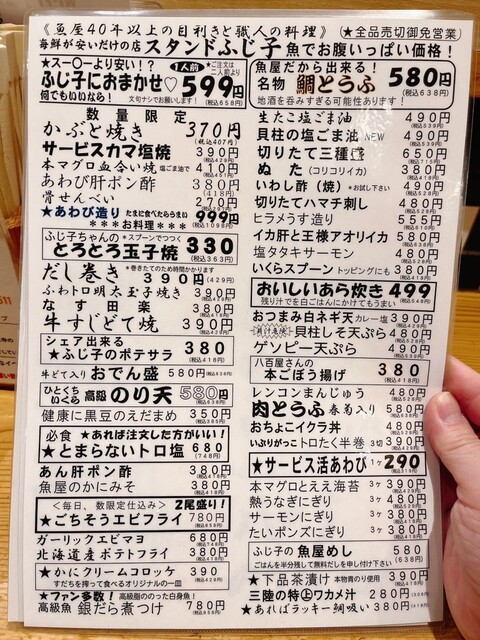 《魚屋40年以上の目利きと職人の料理》(★全品売切御免営業)
海鮮が安いだけの店 スタンドふじ子 魚でお腹いっぱい価格!
★スー〇ーより安い!? 1人前 ★ご注文は二人前より
ふじ子におまかせ♡ 599円 (税込658円)
何でもいいなら! 文句ナシでお願いします!
数量限定
かぶと焼き 370円 (税込407円)
サービスカマ塩焼 390円 (税込429円)
本マグロ血合い焼 塩ごまで 410円 (税込451円)
あわび肝ポン酢 380円 (418円)
骨せんべい 270円
★あわび造り たまに食べたらうまい 999円
***お料理***
ふじ子ちゃんの ★スプーンでつく
とろとろ玉子焼 330 (税込363円)
だし巻き ★巻きたてのため時間かかります 390円 (429円)
ふわトロ明太玉子焼き 390円
なす田楽 380円
牛すじどて焼 390円
シェア出来る
★ふじ子のポテサラ 380 (税込418円)
牛すじ入り おでん盛 580円
ひとくちいくら 高級 のり天 580円
健康に黒豆のえだまめ 350円
必食 ★あれば注文した方がいい!
★とまらないトロ塩 680 (748円)
あん肝ポン酢 380円
魚屋のかにみそ 380円
<毎日、数限定仕込み> 2尾盛り!
★ごちそうエビフライ 780円
ガーリックエビマヨ 680円
北海道産ポテトフライ 380円
★かにクリームコロッケ 390 (税込429円)
すだちを搾って食べるオリジナルの一皿
★ファン多数! 高級脂ののった白身魚!
高級魚 銀だら煮つけ 780円
魚屋だから出来る!
名物 鯛とうふ 580円 (税込638円)
地酒を呑みすぎる可能性あります!
生たこ塩ごま油 490円
貝柱の塩ごま油 NEW 490円
切りたて三種盛 650円
ぬた (コリコリイカ) 380円
いわし酢(焼) ★お試し下さい 490円
切りたてハマチ刺し 480円
ヒラメうす造り 555円
イカ肝と王様アオリイカ 580円
塩タタキサーモン 480円
いくらスプーン トッピングにも 380円
おいしいあら炊き 499
残り汁で白ごはんにかけてもうまい!
おつまみ白ネギ天 カレー塩 390円
貝柱しそ天ぷら 480円
ゲソピー天ぷら 490円
八百屋さんの
本ごぼう揚げ 380 (税込418円)
レンコンまんじゅう 480円
肉とうふ 春菊入り 580円
おちょこイクラ丼 480円
いぶりがっこトロたく半巻 3切 390円
★サービス活あわび 1ヶ 290
本マグロとええ海苔 3ヶ 390円
熱うなぎにぎり 3ヶ 480円
サーモンにぎり 3ヶ 380円
たいポンズにぎり 3ヶ 380円
ふじ子の 魚屋めし 580 (638円)
ごはんを半分残して無料だしを申し付け下さい
★下品茶漬け 本物青のり使用 390円
三陸の特上ワカメ汁 280円
★あればラッキー鯛吸い 380円